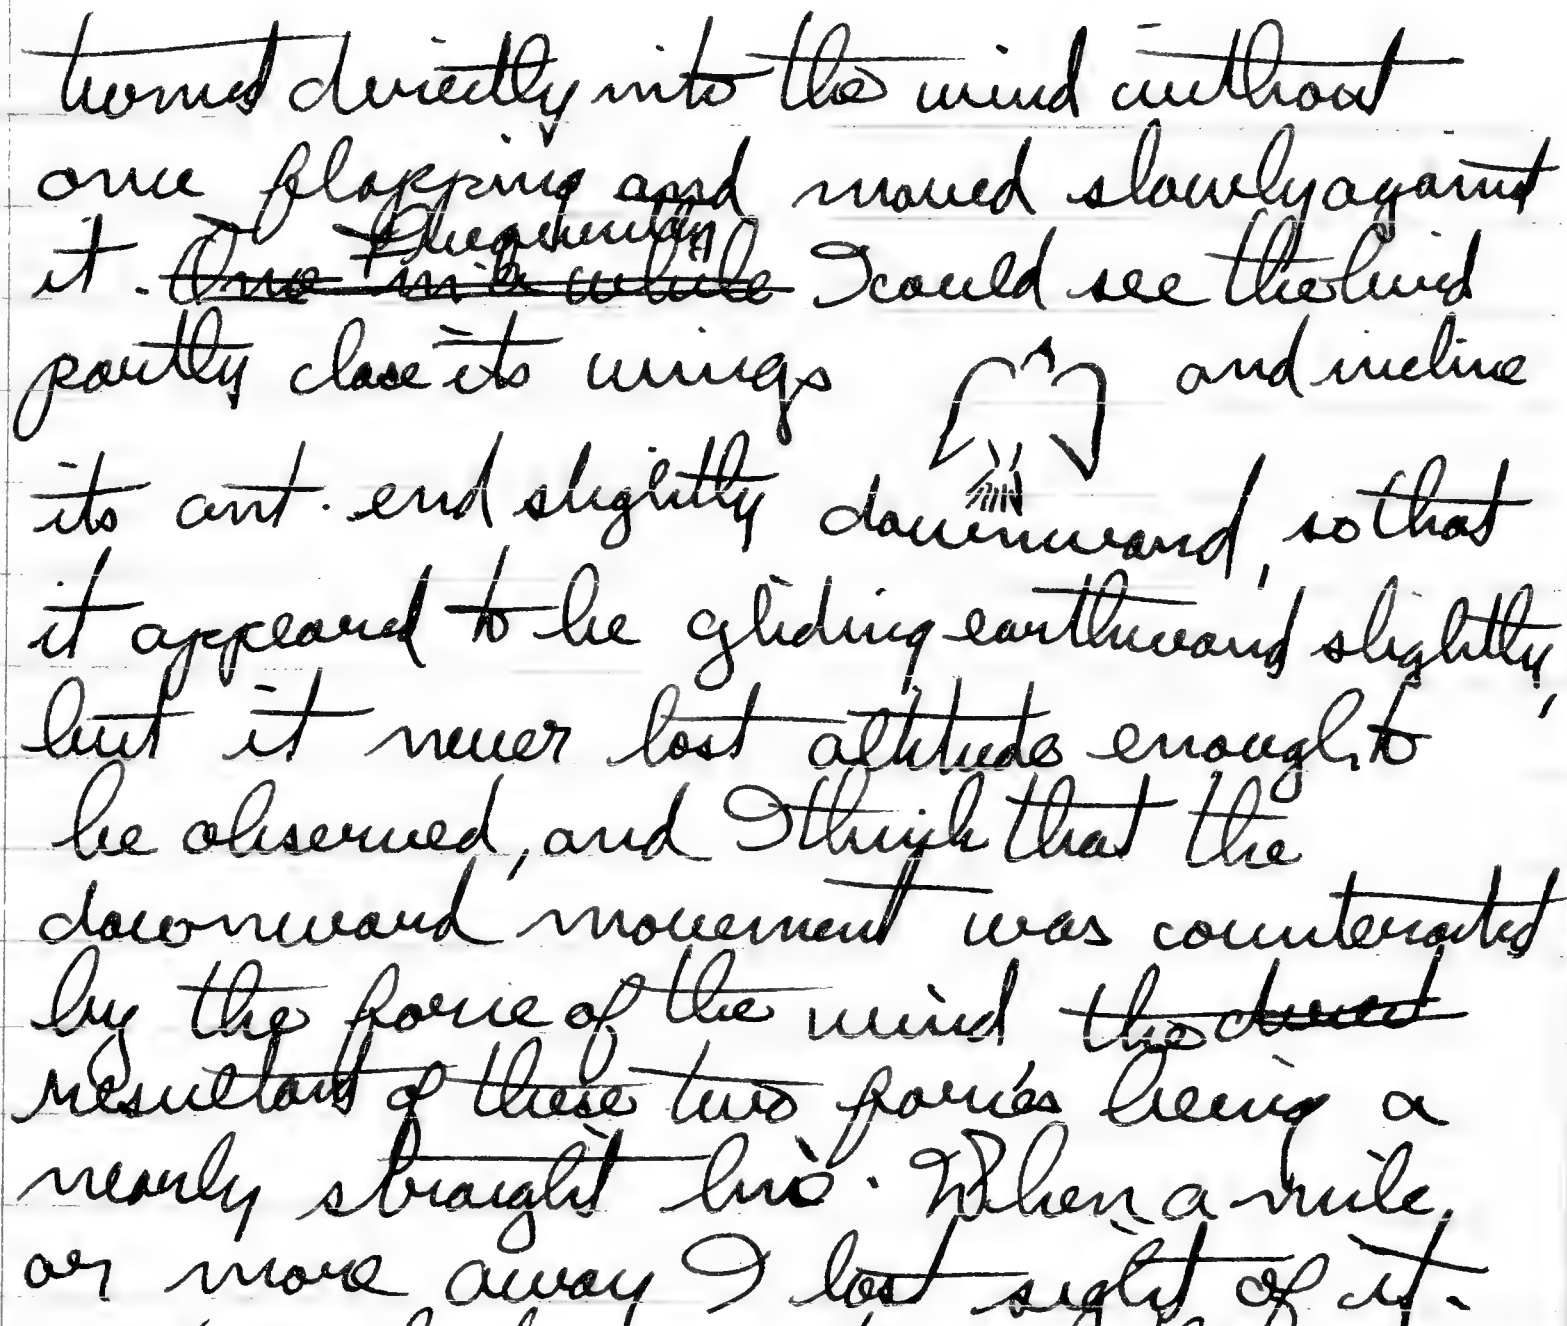 turned directly into the wind without
once flapping and moved slowly against
Frequently
it. One in a while I could see the bird
partly close its wings and incline
its ant. end slightly downward, so that
it appeared to be gliding earthward slightly,
but it never lost altitude enough to
be observed, and I think that the
downward movement was counteracted
by the force of the wind the direct
resultant of these two forces being a
nearly straight line. When a mile
or more away I lost sight of it.